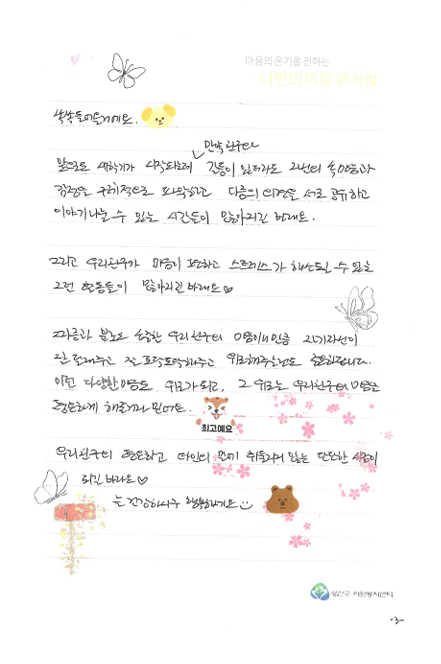 마음의 온기를 전하는
쏙쏙 들어올거예요.
만약 친구와
앞으로 새학기가 시작되는데 갈등이 있더라도 그녀의 속마음과
감정을 구체적으로 파악하고 다름의 의견을 서로 공유하고
이야기나눌 수 있는 시간들이 많아지길 바래요.
그리고 우리친구가 마음이 편하고 스트레스가 해소될 수 있는
그런 활동들이 많아지길 바래요♡
짜증과 분노도 소중한 우리친구의 마음이니만큼 자기자신이
잘 달래주고 잘 토닥토닥해주고 위로해주는것도 필요하답니다.
이런 다양한 마음도 위로가 되고, 그 위로는 우리친구의 마음을
해줄거라 믿어요.
최고예요
우리친구의 타인의 휘둘리지 않는 단단한 사람이
되길 바라요♡
늘 건강하시구 행복하세요
자원봉사센터
-3-